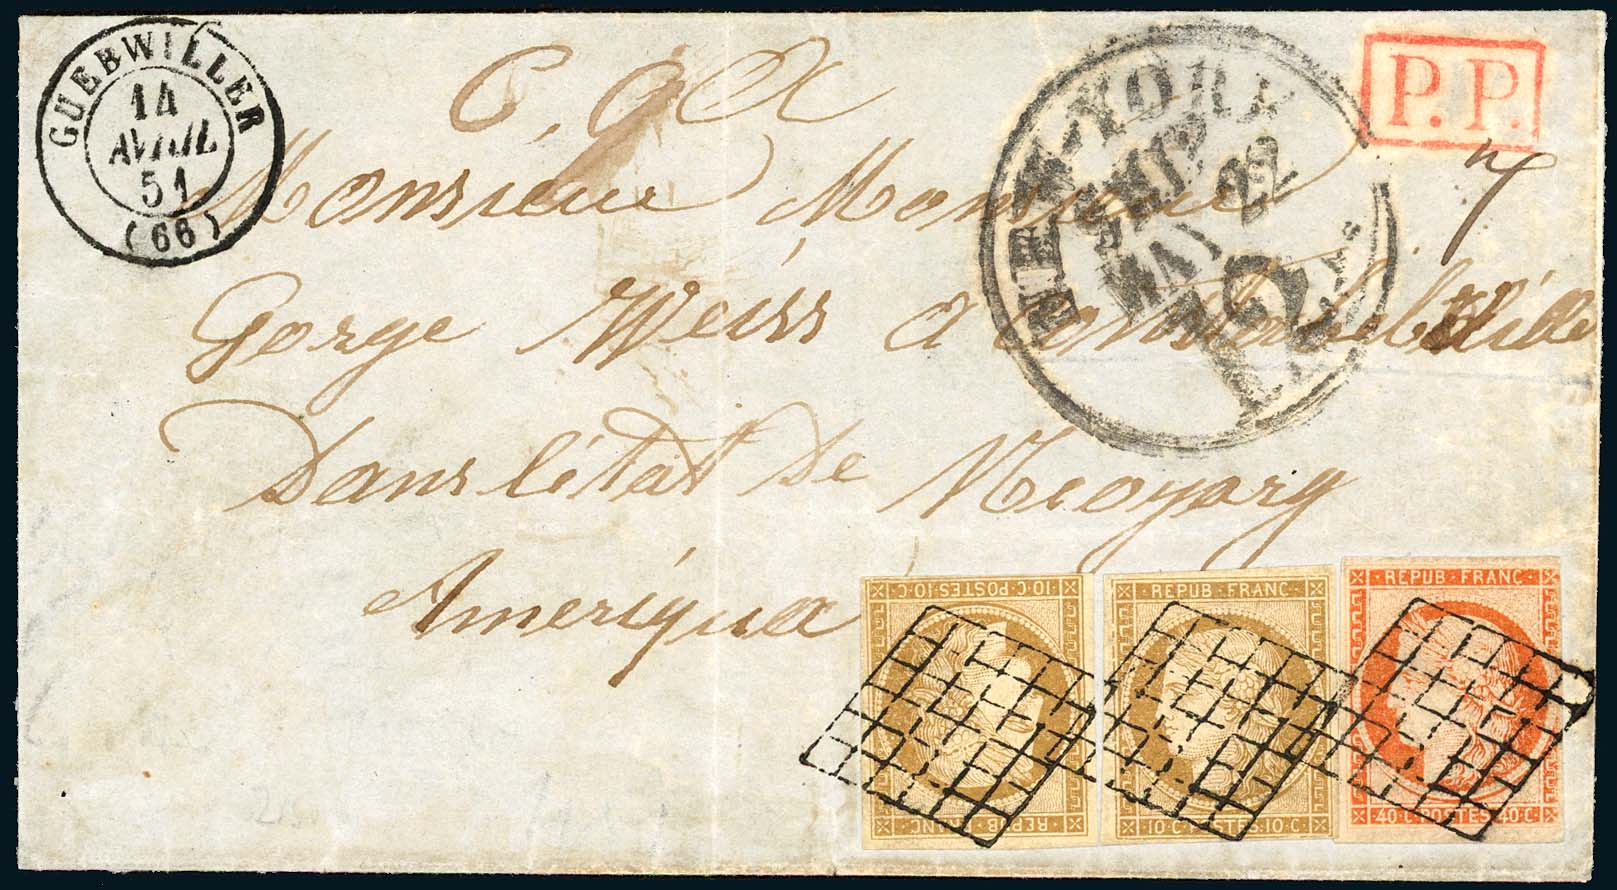 GUEBWILLER
14
AVRIL
51
(66)
NEW-YORK
SHIP
MAY 22
P.P.
Monsieur Monsieur
Gorge Weiss a
Dans l'état de Neoyorg
Ameriqua
10·C·POSTES·10·C
REPUB·FRANC
REPUB·FRANC·
10·C·POSTES·10·C
·REPUB·FRANC·
·40·C·POSTES·40·C·